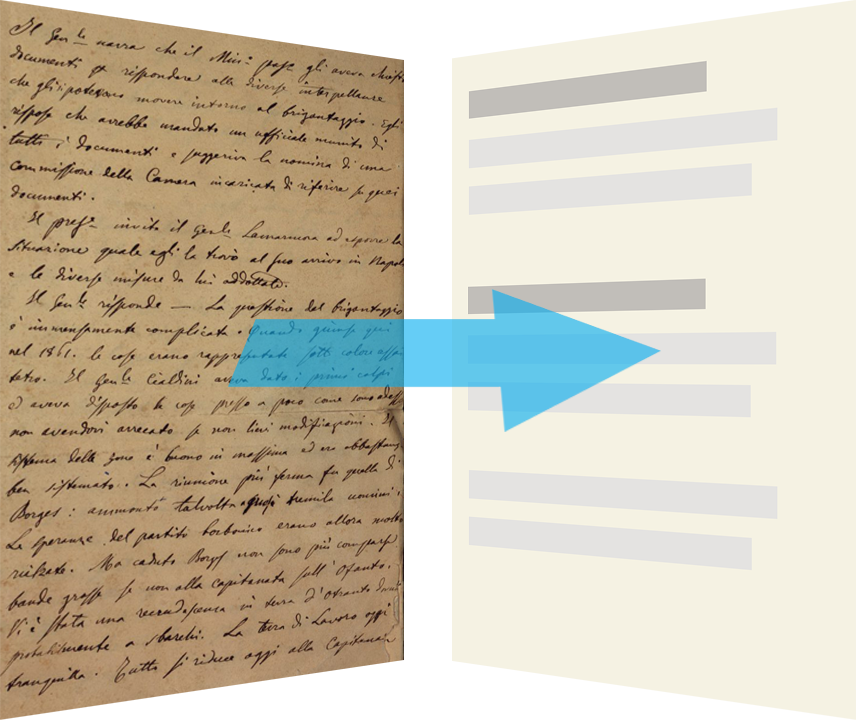 Il Gen.le narra che il Min.o pass.o gli aveva chiesti
documenti p rispondere alle diverse interpellanze
che gli si potevano movere intorno al brigantaggio. Egli
rispose che avrebbe mandato un ufficiale munito di
tutti i documenti e suggeriva la nomina di una
Commissione della Camera incaricata di riferire su quei
documenti.
Il pres.e invita il Gen.le Lamarmora ad esporre la
situazione quale egli la trovò al suo arrivo in Napoli
e le diverse misure da lui addottate.
Il Gen.le risponde — La questione del brigantaggio
è immensamente complicata. Quando giunse qui
nel 1861. le cose erano rappresentate sott colore assai
tetro. Il Gen.le Cialdini aveva dato i primi colpi
ed aveva disposto le cose presso a poco come sono adesso
non avendovi arrecato se non lievi modificazioni. Il
sistema delle zone è buono in massima ed era abbastanza
ben sistemato. La riunione più ferma fu quella di
Borges: ammontò talvolta a quasi tremila uomini.
Le speranze del partito borbonico erano allora molto
rialzate. Ma caduto Borges non sono più comparse
bande grosse se non alla capitanata sull' Ofanto.
Vi è stata una recrudescenza in terra d'Otranto dovuta
probabilmente a sbarchi. La terra di Lavoro oggi
tranquilla. Tutto si riduce oggi alla Capitanata